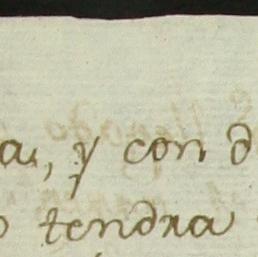 a, y con d
o tendra